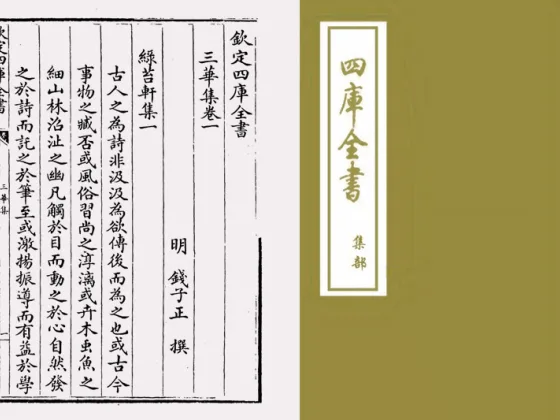 四庫全書
集部
欽定四庫全書
三華集卷一
明 錢子正 撰
綠苔軒集一
古人之為詩非汲汲為欲傳後而為之也或古今
事物之臧否或風俗習尚之淳漓或卉木虫魚之
細山林沼沚之幽凡觸於目而動之於心自然發
之於詩而託之於筆至或激揚振導而有益於學
定四庫全書
三華集